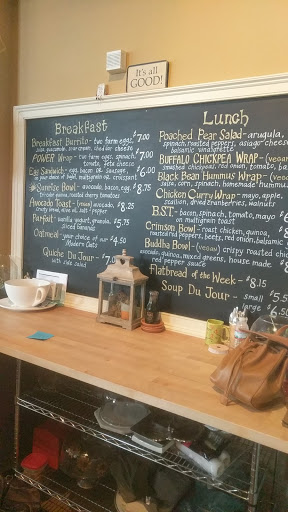 It's all
GOOD!
Breakfast
Breakfast Burrito - two farm eggs, $7.00
salsa, guacamole, sour cream, cheddar cheese
POWER Wrap - two farm eggs, spinach, $7.00
tomato, feta cheese
Egg Sandwich - egg, bacon or sausage, $6.00
your choice of bagel, multigrain or croissant
Sunrise Bowl - avocado, bacon, egg, $8.75
quinoa, roasted cherry tomatoes
Avocado Toast - (vegan) avocado, $8.25
crusty bread, olive oil, salt + pepper
Parfait - vanilla yogurt, granola, $5.75
sliced almonds
Oatmeal - your choice of our $4.50
Modern Oats
Quiche Du Jour - $7.00
with side salad
Lunch
Poached Pear Salad - arugula,
spinach, roasted peppers, asiago cheese
balsamic vinaigrette
BUFFALO CHICKPEA WRAP - (vegan)
smashed chickpeas, red onion, tomato,
Black Bean Hummus Wrap - (vegan)
salsa, corn, spinach, homemade hummus
Chicken Curry Wrap - mayo, apple,
scallion, dried cranberries, walnuts
B.S.T. - bacon, spinach, tomato, mayo $6
on multigrain toast
Crimson Bowl - roast chicken, quinoa,
roasted red peppers, beets, red onion, balsamic
Buddha Bowl - (vegan) crispy roasted chick
avocado, quinoa, mixed greens, house made $8
red pepper sauce
Flatbread of the Week - $8.15
Soup Du Jour - small $5.5
large $6.50